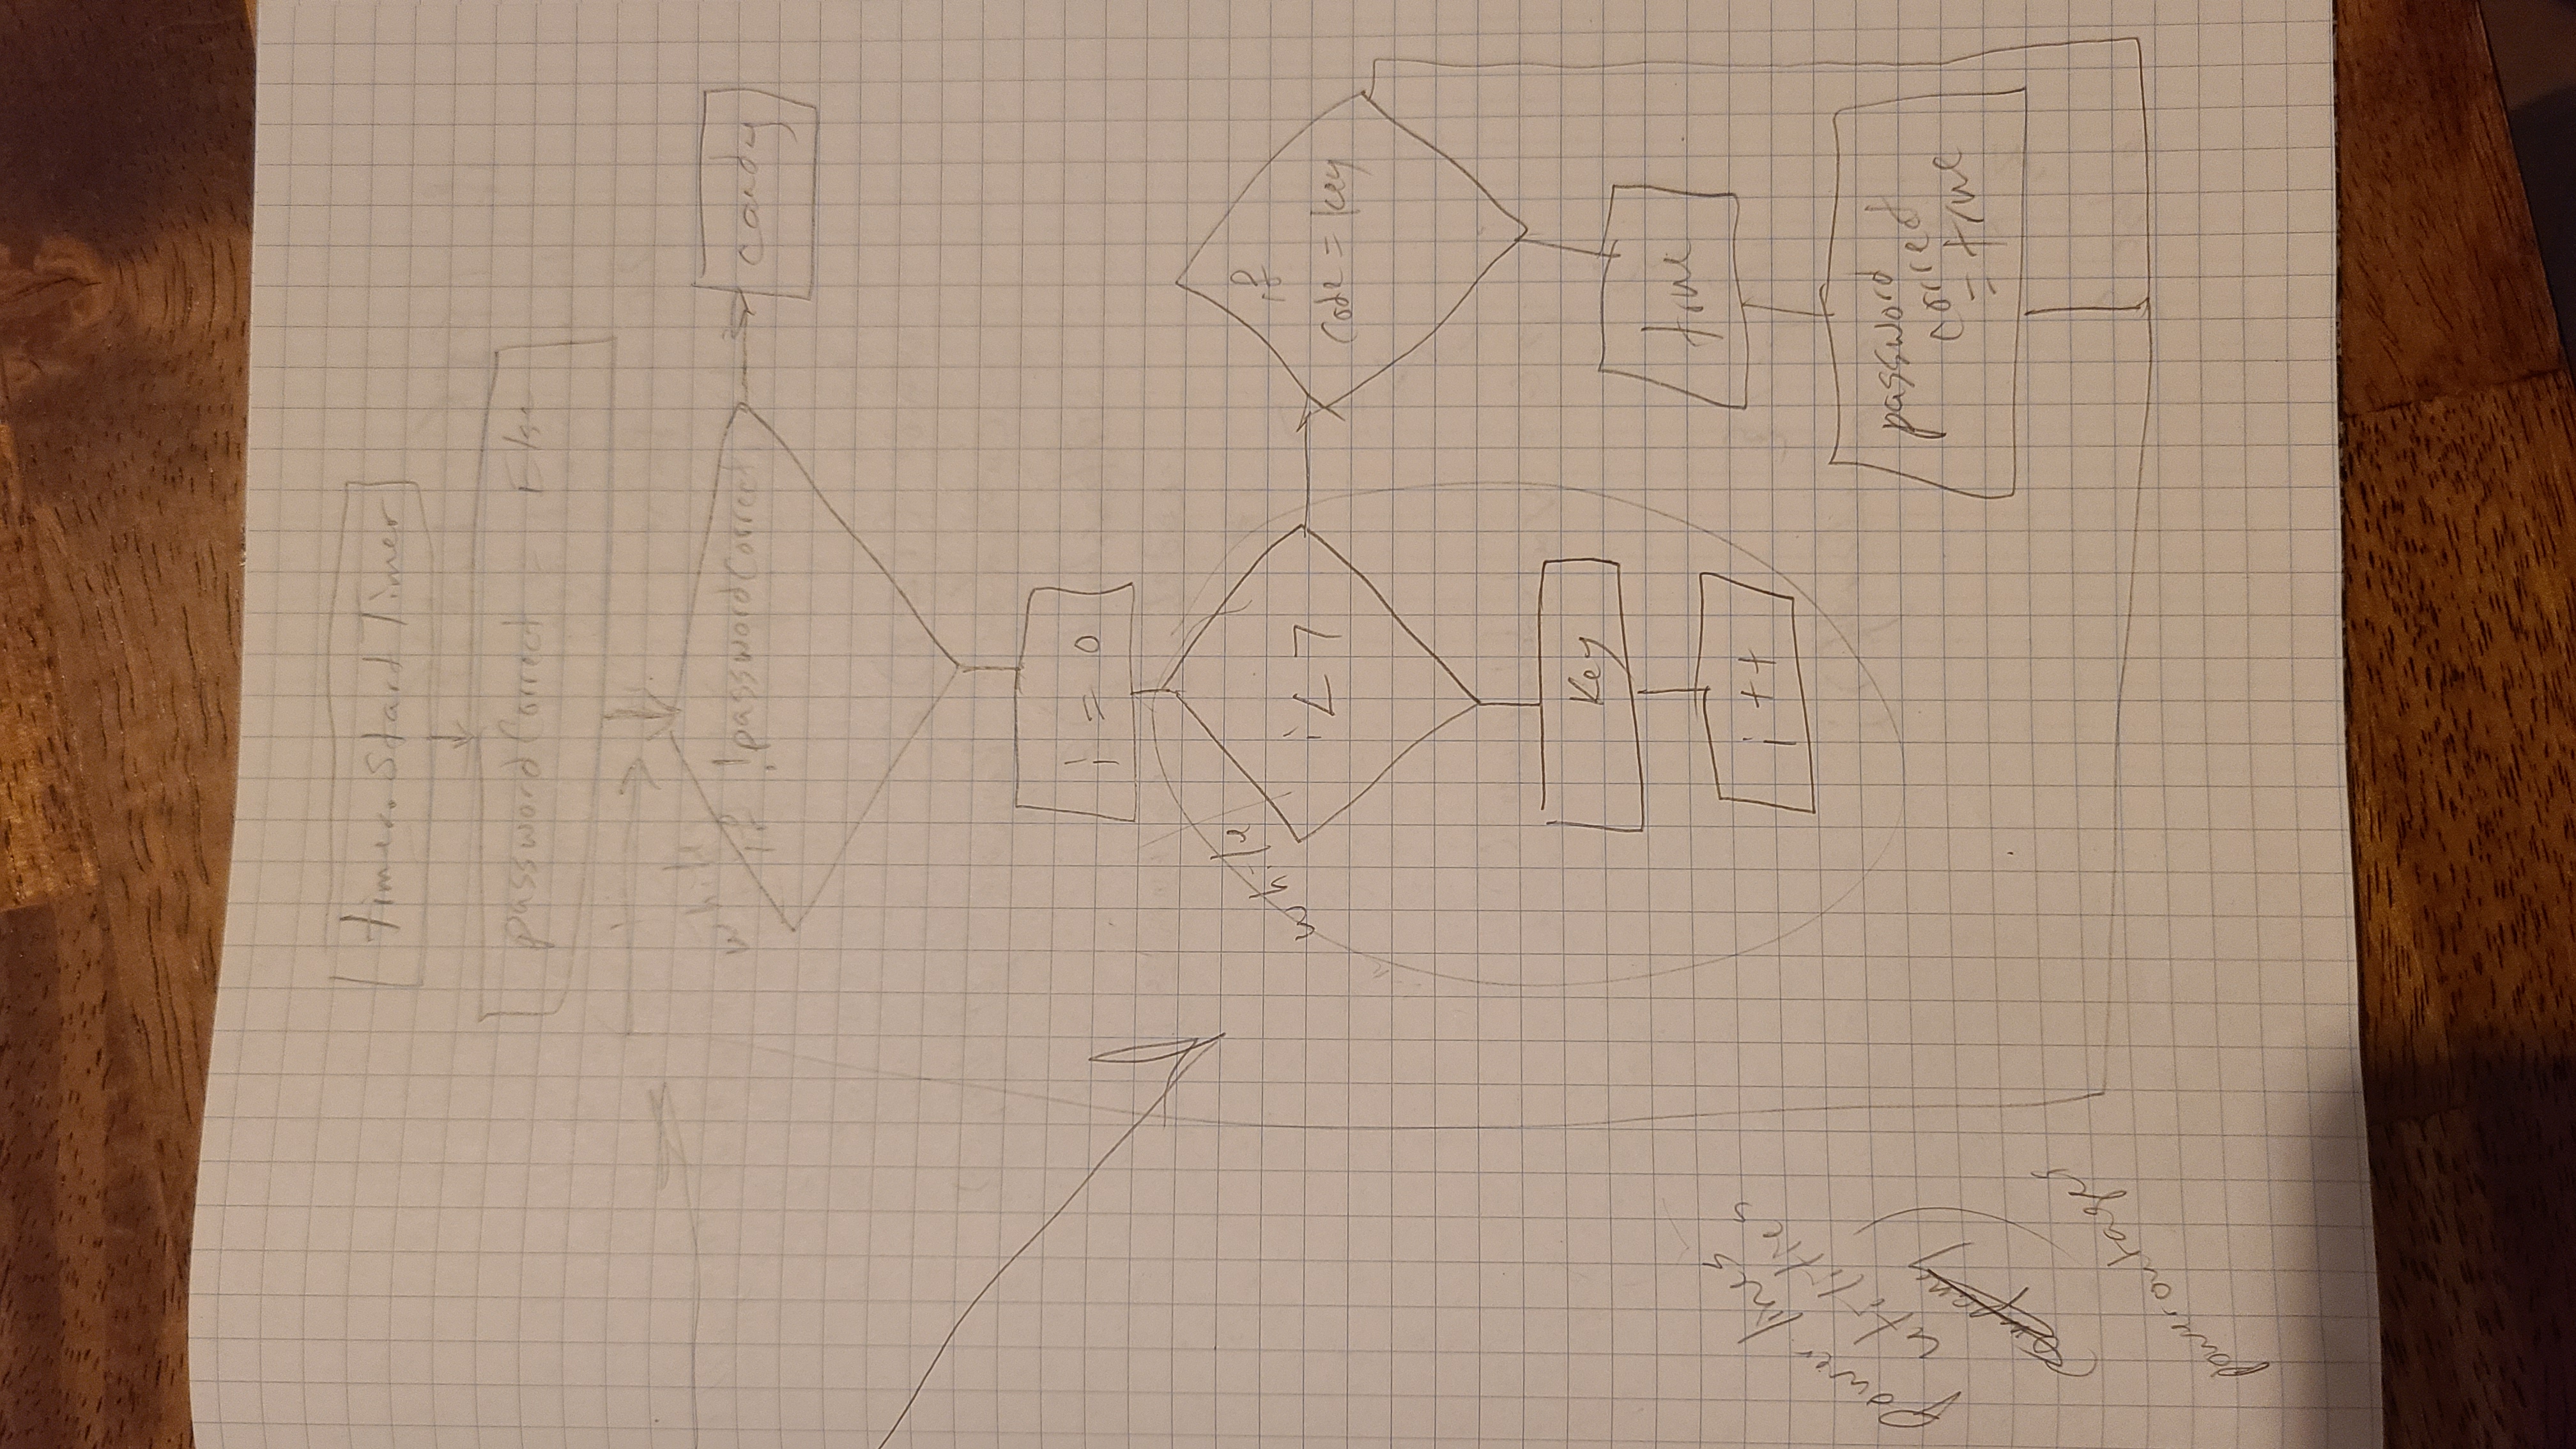 timer.StartTimer
passwordCorrect = Else
while
if !passwordCorrect
candy
i = 0
while
i < 7
if
Code = key
Key
true
i ++
password
correct
= true
Power lines
utilities
company
poweroutages